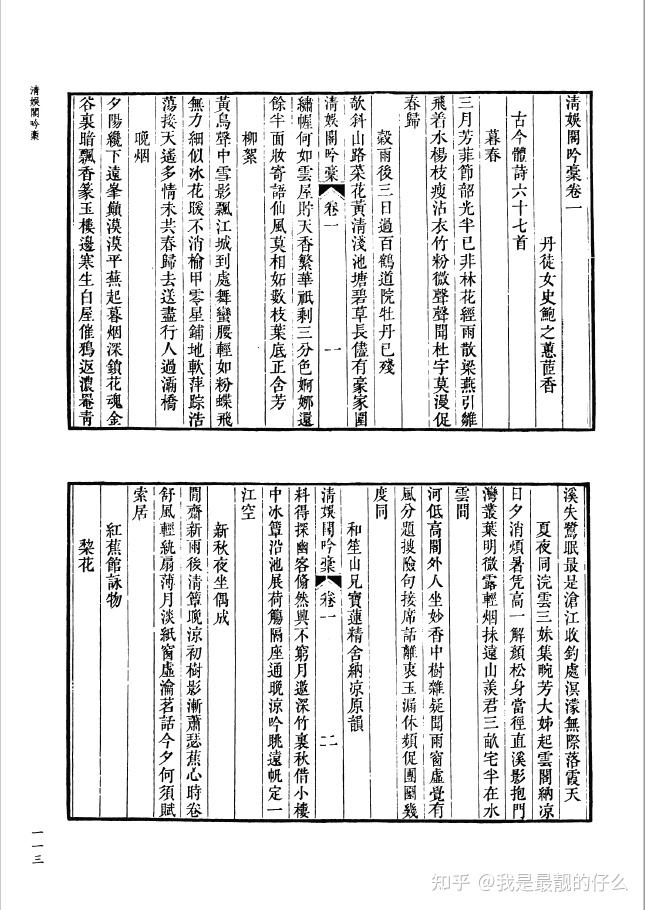 清娛閣吟稾
清娛閣吟稾卷一
丹徒女史鮑之蕙茝香
古今體詩六十七首
暮春
三月芳菲節韶光半已非林花經雨散梁燕引雛
飛着水楊枝瘦沾衣竹粉微聲聲聞杜宇莫漫促
春歸
穀雨後三日過百鶴道院牡丹已殘
欹斜山路菜花黃清淺池塘碧草長儘有豪家圍
清娛閣吟稾 卷一 一
繡幄何如雲屋貯天香繁華祇剩三分色婀娜還
餘半面妝寄語仙風莫相妬數枝葉底正含芳
柳絮
黃鳥聲中雪影飄江城到處舞蠻腰輕如粉蝶飛
無力細似冰花暖不消榆甲零星鋪地軟萍踪浩
蕩接天遙多情未共春歸去送盡行人過灞橋
晚烟
夕陽纔下遠峯巔漠漠平蕪起暮烟深鎖花魂金
谷裏暗飄香篆玉樓邊寒生白屋催鴉返濃罨靑
溪失鷺眠最是滄江收釣處溟濛無際落霞天
夏夜同浣雲三妹集畹芳大姊起雲閣納凉
日夕消煩暑凭高一解顏松身當徑直溪影抱門
灣叢葉明微露輕烟抹遠山羨君三畝宅半在水
雲間
河低高閣外人坐妙香中樹雜疑聞雨窗虛覺有
風分題搜險句接席話離衷玉漏休頻促團圞幾
度同
和笙山兄寶蓮精舍納凉原韻
料得探幽客翛然興不窮月邀深竹裏秋借小樓
清娛閣吟稾 卷一 二
中冰簟沿池展荷觴隔座通晚凉吟眺遠帆定一
江空
新秋夜坐偶成
閒齋新雨後清簟晚凉初樹影漸蕭瑟蕉心時卷
舒風輕紈扇薄月淡紙窗虛瀹茗話今夕何須賦
索居
紅蕉館詠物
梨花
一一三
知乎 @我是最靓的仔么